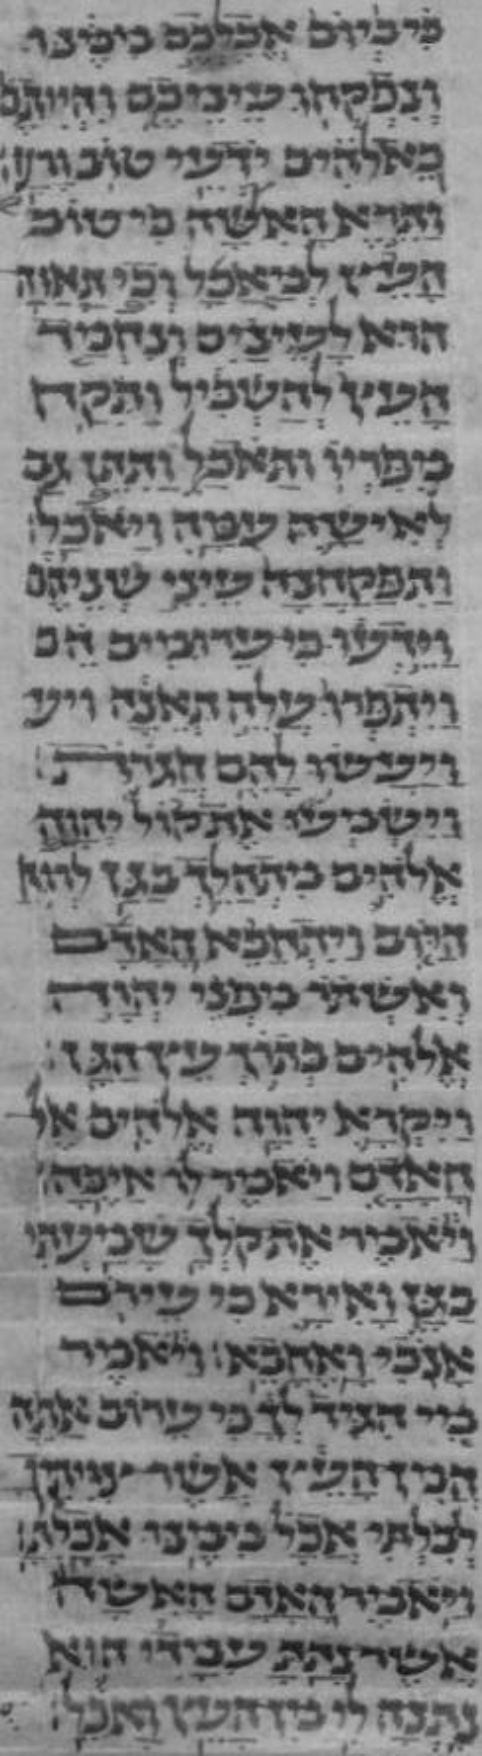 כי ביום אכלכם ממנו
ונפקחו עיניכם והייתם
כאלהים ידעי טוב ורע׃
ותרא האשה כי טוב
העץ למאכל וכי תאוה
הוא לעינים ונחמד
העץ להשכיל ותקח
מפריו ותאכל ותתן גם
לאישה עמה ויאכל׃
ותפקחנה עיני שניהם
וידעו כי ערומים הם
ויתפרו עלה תאנה ויע
ויעשו להם חגרת׃
וישמעו את קול יהוה
אלהים מתהלך בגן לרוח
היום ויתחבא האדם
ואשתו מפני יהוה
אלהים בתוך עץ הגן׃
ויקרא יהוה אלהים אל
האדם ויאמר לו איכה׃
ויאמר את קלך שמעתי
בגן ואירא כי עירם
אנכי ואחבא׃ ויאמר
מי הגיד לך כי ערום אתה
המן העץ אשר צויתיך
לבלתי אכל ממנו אכלת׃
ויאמר האדם האשה
אשר נתתה עמדי הוא
נתנה לי מן העץ ואכל׃